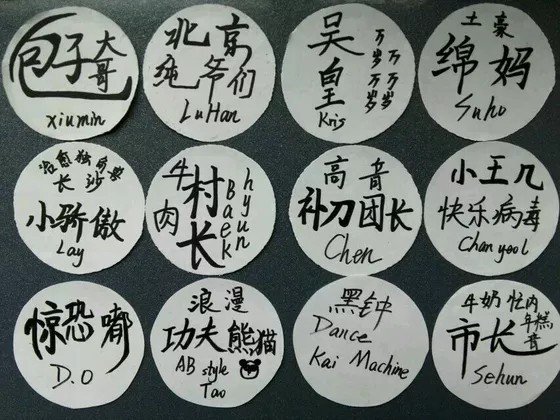 包子大哥
xiumin
北京
纯爷们
LuHan
吴皇
万岁万岁万万岁
Kris
土豪
绵妈
Suho
治愈独角兽
长沙
小骄傲
Lay
牛肉
村长
Baekhyun
高音
补刀团长
Chen
小王几
快乐病毒
Chanyeol
惊恐嘟
D.O
浪漫
功夫熊猫
AB style
Tao
黑钟
Dance
Kai Machine
牛奶忙内
年糕音
市长
Sehun